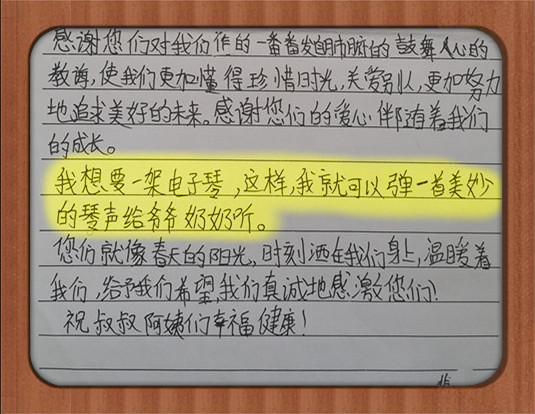 感谢您们对我们作的一番番发自肺腑的鼓舞人心的
教导,使我们更加懂得珍惜时光,关爱别人,更加努力
地追求美好的未来。感谢您们的爱心伴随着我们
的成长。
我想要一架电子琴,这样,我就可以弹一首美妙
的琴声给爷爷奶奶听。
您们就像春天的阳光,时刻洒在我们身上,温暖着
我们,给予我们希望,我们真诚地感激您们!
祝叔叔阿姨们幸福健康!